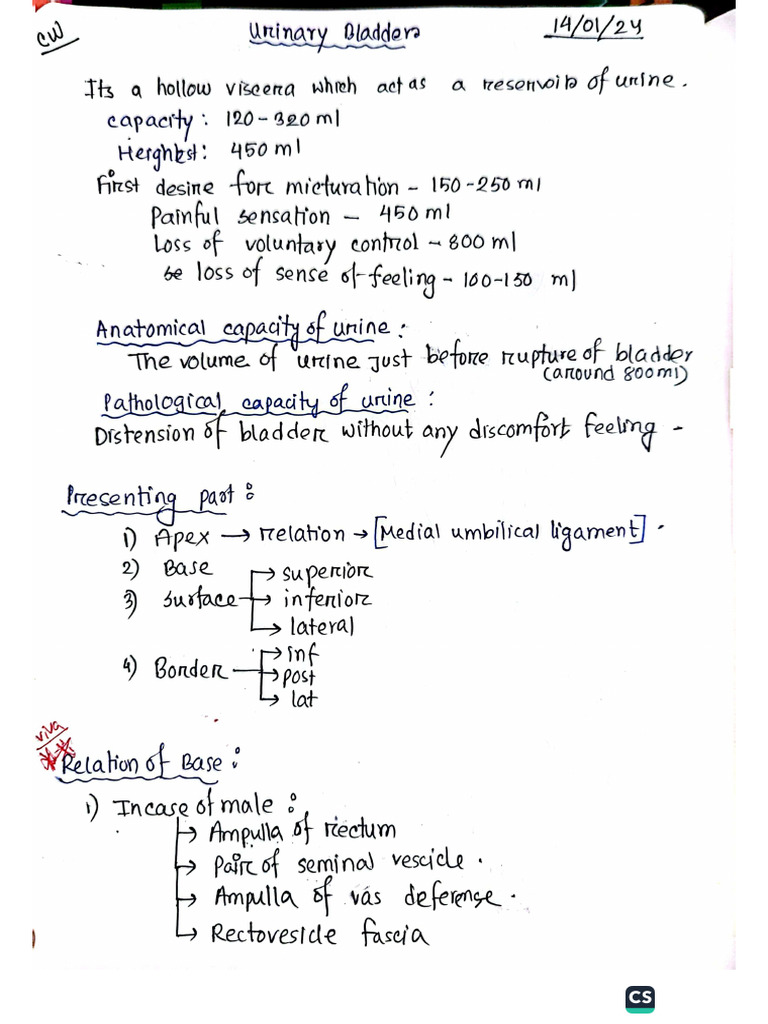 CW
Urinary Bladder
14/01/24
Its a hollow viscera which act as a reservoir of urine.
capacity: 120-320 ml
Herghest: 450 ml
First desire for micturation - 150-250 ml
Painful sensation - 450 ml
Loss of voluntary control - 800 ml
loss of sense of feeling - 100-150 ml
Anatomical capacity of urine:
The volume of urine just before rupture of bladder
(around 800ml)
Pathological capacity of urine:
Distension of bladder without any discomfort feeling -
Presenting part:
1) Apex → relation → [Medial umbilical ligament].
2) Base
→ superior
3) surface → inferior
→ lateral
→ inf
4) Border → post
→ lat
viva
**
Relation of Base:
1) Incase of male:
→ Ampulla of rectum
→ Pair of seminal vescicle.
→ Ampulla of vas deferense.
→ Rectovesicle fascia
CS